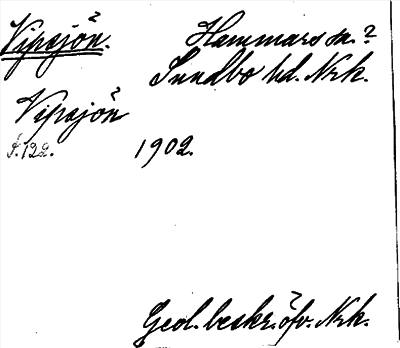 Vipsjön. Hammars sn.?
Sundbo hd. Nrk.
Vipsjön
s. 122. 1902.
Geol. beskr. öfv. Nrk.